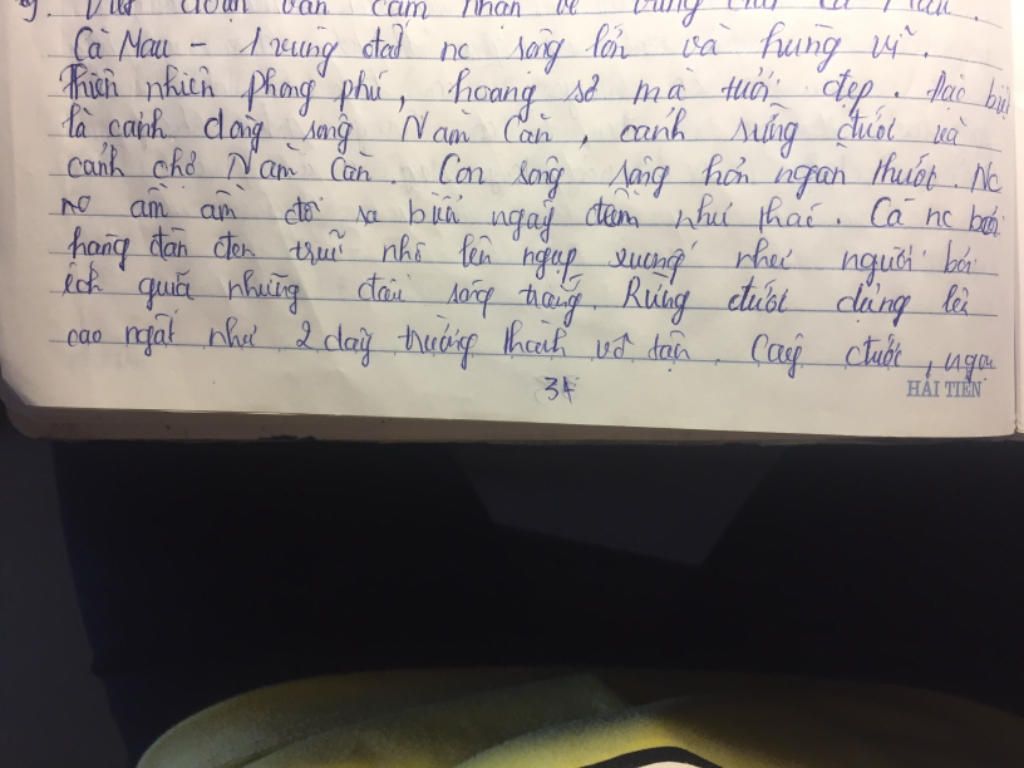 g. Viết đoạn văn cảm nhận về vùng chợ Cà Mau.
Cà Mau - 1 vùng đất nc sông lớn và hùng vĩ.
Thiên nhiên phong phú, hoang sơ mà tươi đẹp. Đặc biệt
là cảnh dòng sông Năm Căn, cảnh rừng đước và
cảnh chợ Năm Căn. Con sông rộng hơn ngàn thước. Nc
nó ầm ầm đổ ra biển ngày đêm như thác. Cá nc bơi
hàng đàn đen trũi nhô lên ngụp xuống như người bơi
ếch giữa những đầu sóng trắng. Rừng đước dựng lên
cao ngất như 2 dãy trường thành vô tận. Cây đước, ngọn
34
HẢI TIẾN